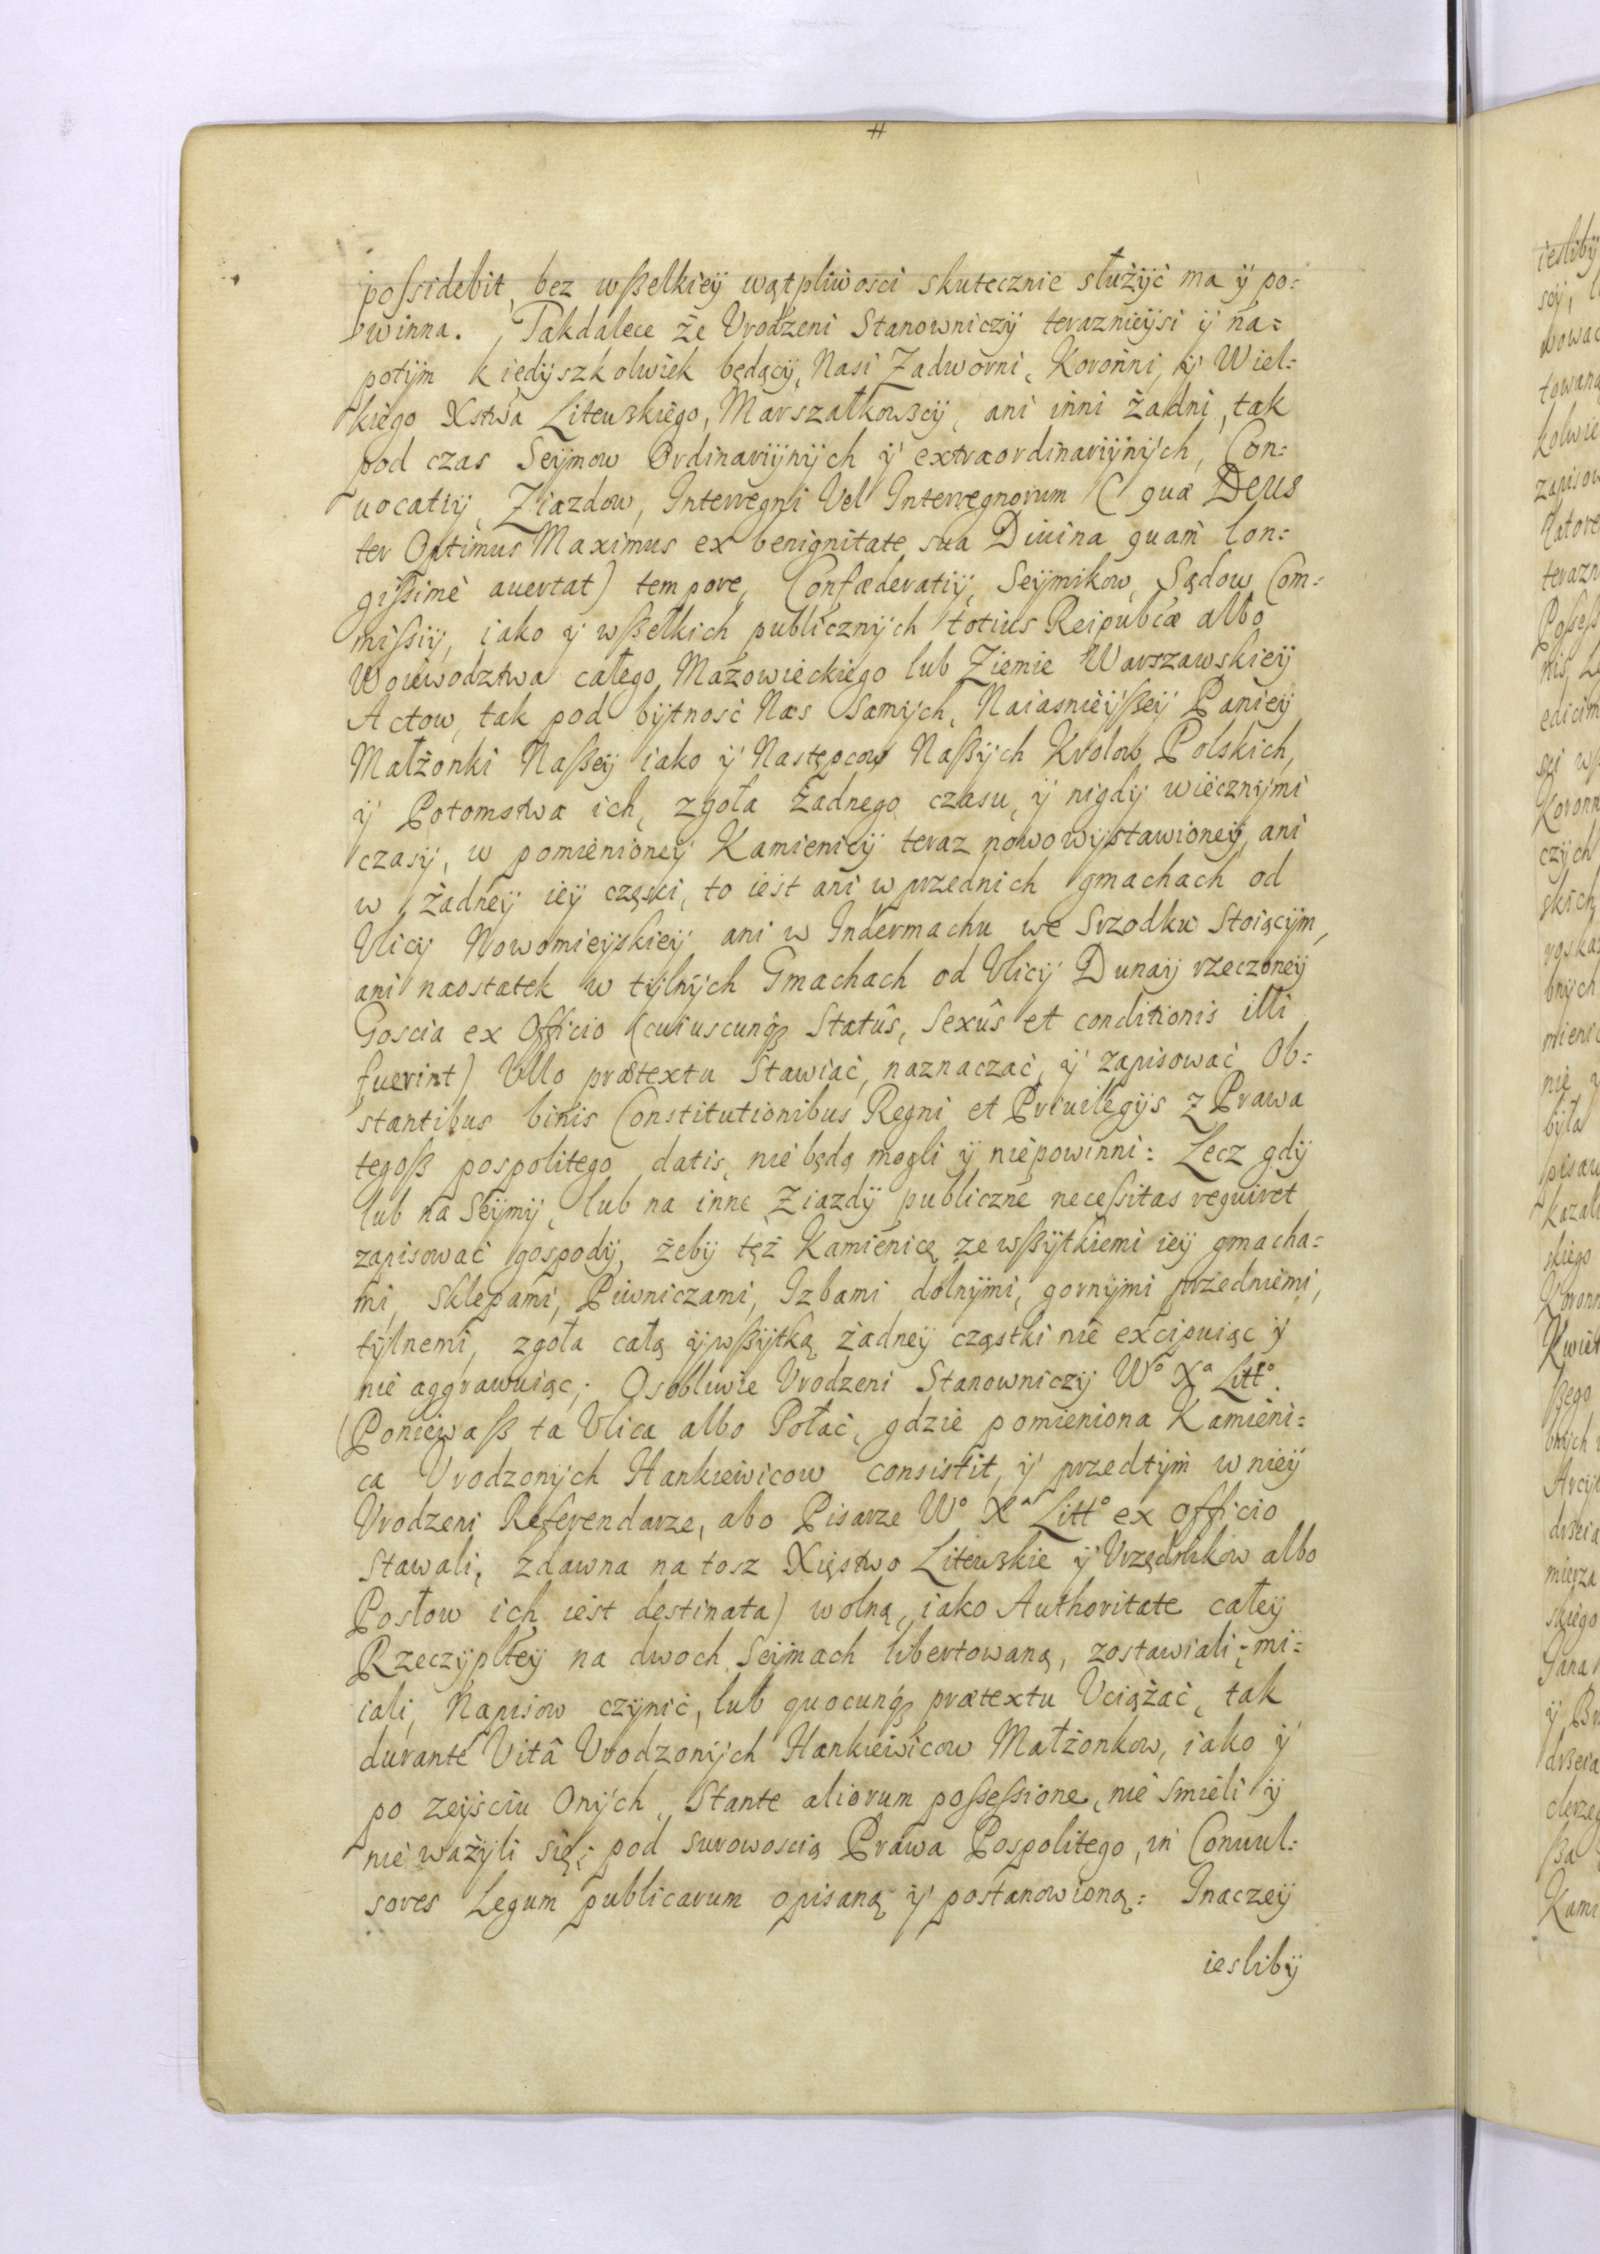 possidebit, bez wßelkieÿ wątpliwości skutecznie służÿć ma ÿ po=
winna. Takdalece że Vrodzeni Stanowniczÿ teraznieÿsi ÿ na=
potÿm kiedÿszkolwiek będącÿ, Nasi Zadworni, Koronni, ÿ Wiel=
kiego Xstwa Litewskiego, Marszałkowscÿ, ani inni żadni, tak
pod czas Seÿmow Ordinariÿnÿch ÿ extraordinariÿnÿch, Con=
uocatiÿ, Ziazdow, Interregni Vel Interregnorum (quæ Deus
ter Optimus Maximus ex benignitate sua Diuina quam lon=
gißimè auertat) tempore, Confæderatiÿ, Seÿmikow, Sądow Com=
mißiÿ, iako ÿ wßelkich publicznÿch totius Reipubcæ albo
Woiewodztwa całego Mazowieckiego lub Ziemie Warszawskieÿ
Actow, tak pod bÿtność Nas samÿch, Naiasnieÿßeÿ Panieÿ
Małżonki Naßeÿ iako ÿ Następcow Naßÿch Krolow Polskich,
ÿ Potomstwa ich, zgoła żadnego czasu, ÿ nigdÿ wiecznÿmi
czasÿ, w pomienioneÿ Kamienicÿ teraz nowowÿstawioneÿ, ani
w żadneÿ ieÿ częsci, to iest ani w przednich gmachach od
Vlicÿ Nowomieÿskieÿ ani w Indermachu we Srzodku stoiącÿm,
ani naostatek w tÿlnÿch Gmachach od Vlicÿ Dunaÿ rzeczoneÿ
Goscia ex Officio (cuiuscunq₃ Statûs, Sexûs et conditionis illi
fuerint) Vllo prætextu Stawiać, naznaczać, ÿ zapisować Ob=
stantibus binis Constitutionibus Regni et Priuilegÿs z Prawa
tegoß pospolitego datis, nie będą mogli ÿ niepowinni: Lecz gdÿ
lub na Seÿmÿ, lub na inne Ziazdÿ publiczne necessitas requiret
zapisować gospodÿ, żebÿ tęż Kamienicę ze wßÿtkiemi ieÿ gmacha=
mi, Sklepami, Piwniczami, Izbami dolnÿmi, gornÿmi przedniemi,
tÿlnemi, zgoła całą ÿ wßÿtką żadneÿ cząstki nie excipuiąc ÿ
nie aggrawuiąc; Osobliwie Vrodzeni Stanowniczÿ Wº Xª Littº.
(Poniewaß ta Vlica albo Połać, gdzie pomieniona Kamieni=
ca Vrodzonÿch Hankiewicow consistit, ÿ przedtÿm w nieÿ
Vrodzeni Referendarze, abo Pisarze Wº Xª Littº ex Officio
stawali, zdawna na tosz Xięstwo Litewskie ÿ Vrzędnikow albo
Posłow ich iest destinata) wolną, iako Authoritate całeÿ
Rzeczÿpłteÿ na dwoch Seÿmach libertowaną, zostawiali; mi=
iali, Napisow czÿnić, lub quocunq₃ prætextu Vciążać, tak
durante Vitâ Vrodzonÿch Hankiewicow Małżonkow, iako ÿ
po zeÿściu Onÿch, Stante aliorum possessione, nie smieli ÿ
nie ważÿli się; pod surowoscią Prawa Pospolitego, in Conuul=
sores Legum publicarum opisaną ÿ postanowioną: Inaczeÿ
ieslibÿ